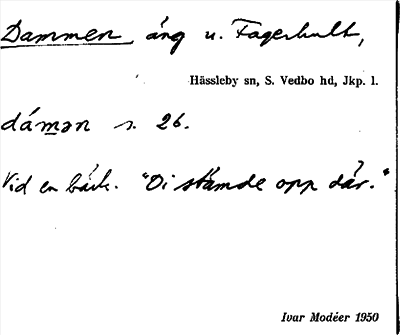 Dammen äng u. Fagerhult,
Hässleby sn, S. Vedbo hd, Jkp. l.
dámən s. 26.
Vid en bäck. "Di stämde opp där."
Ivar Modéer 1950